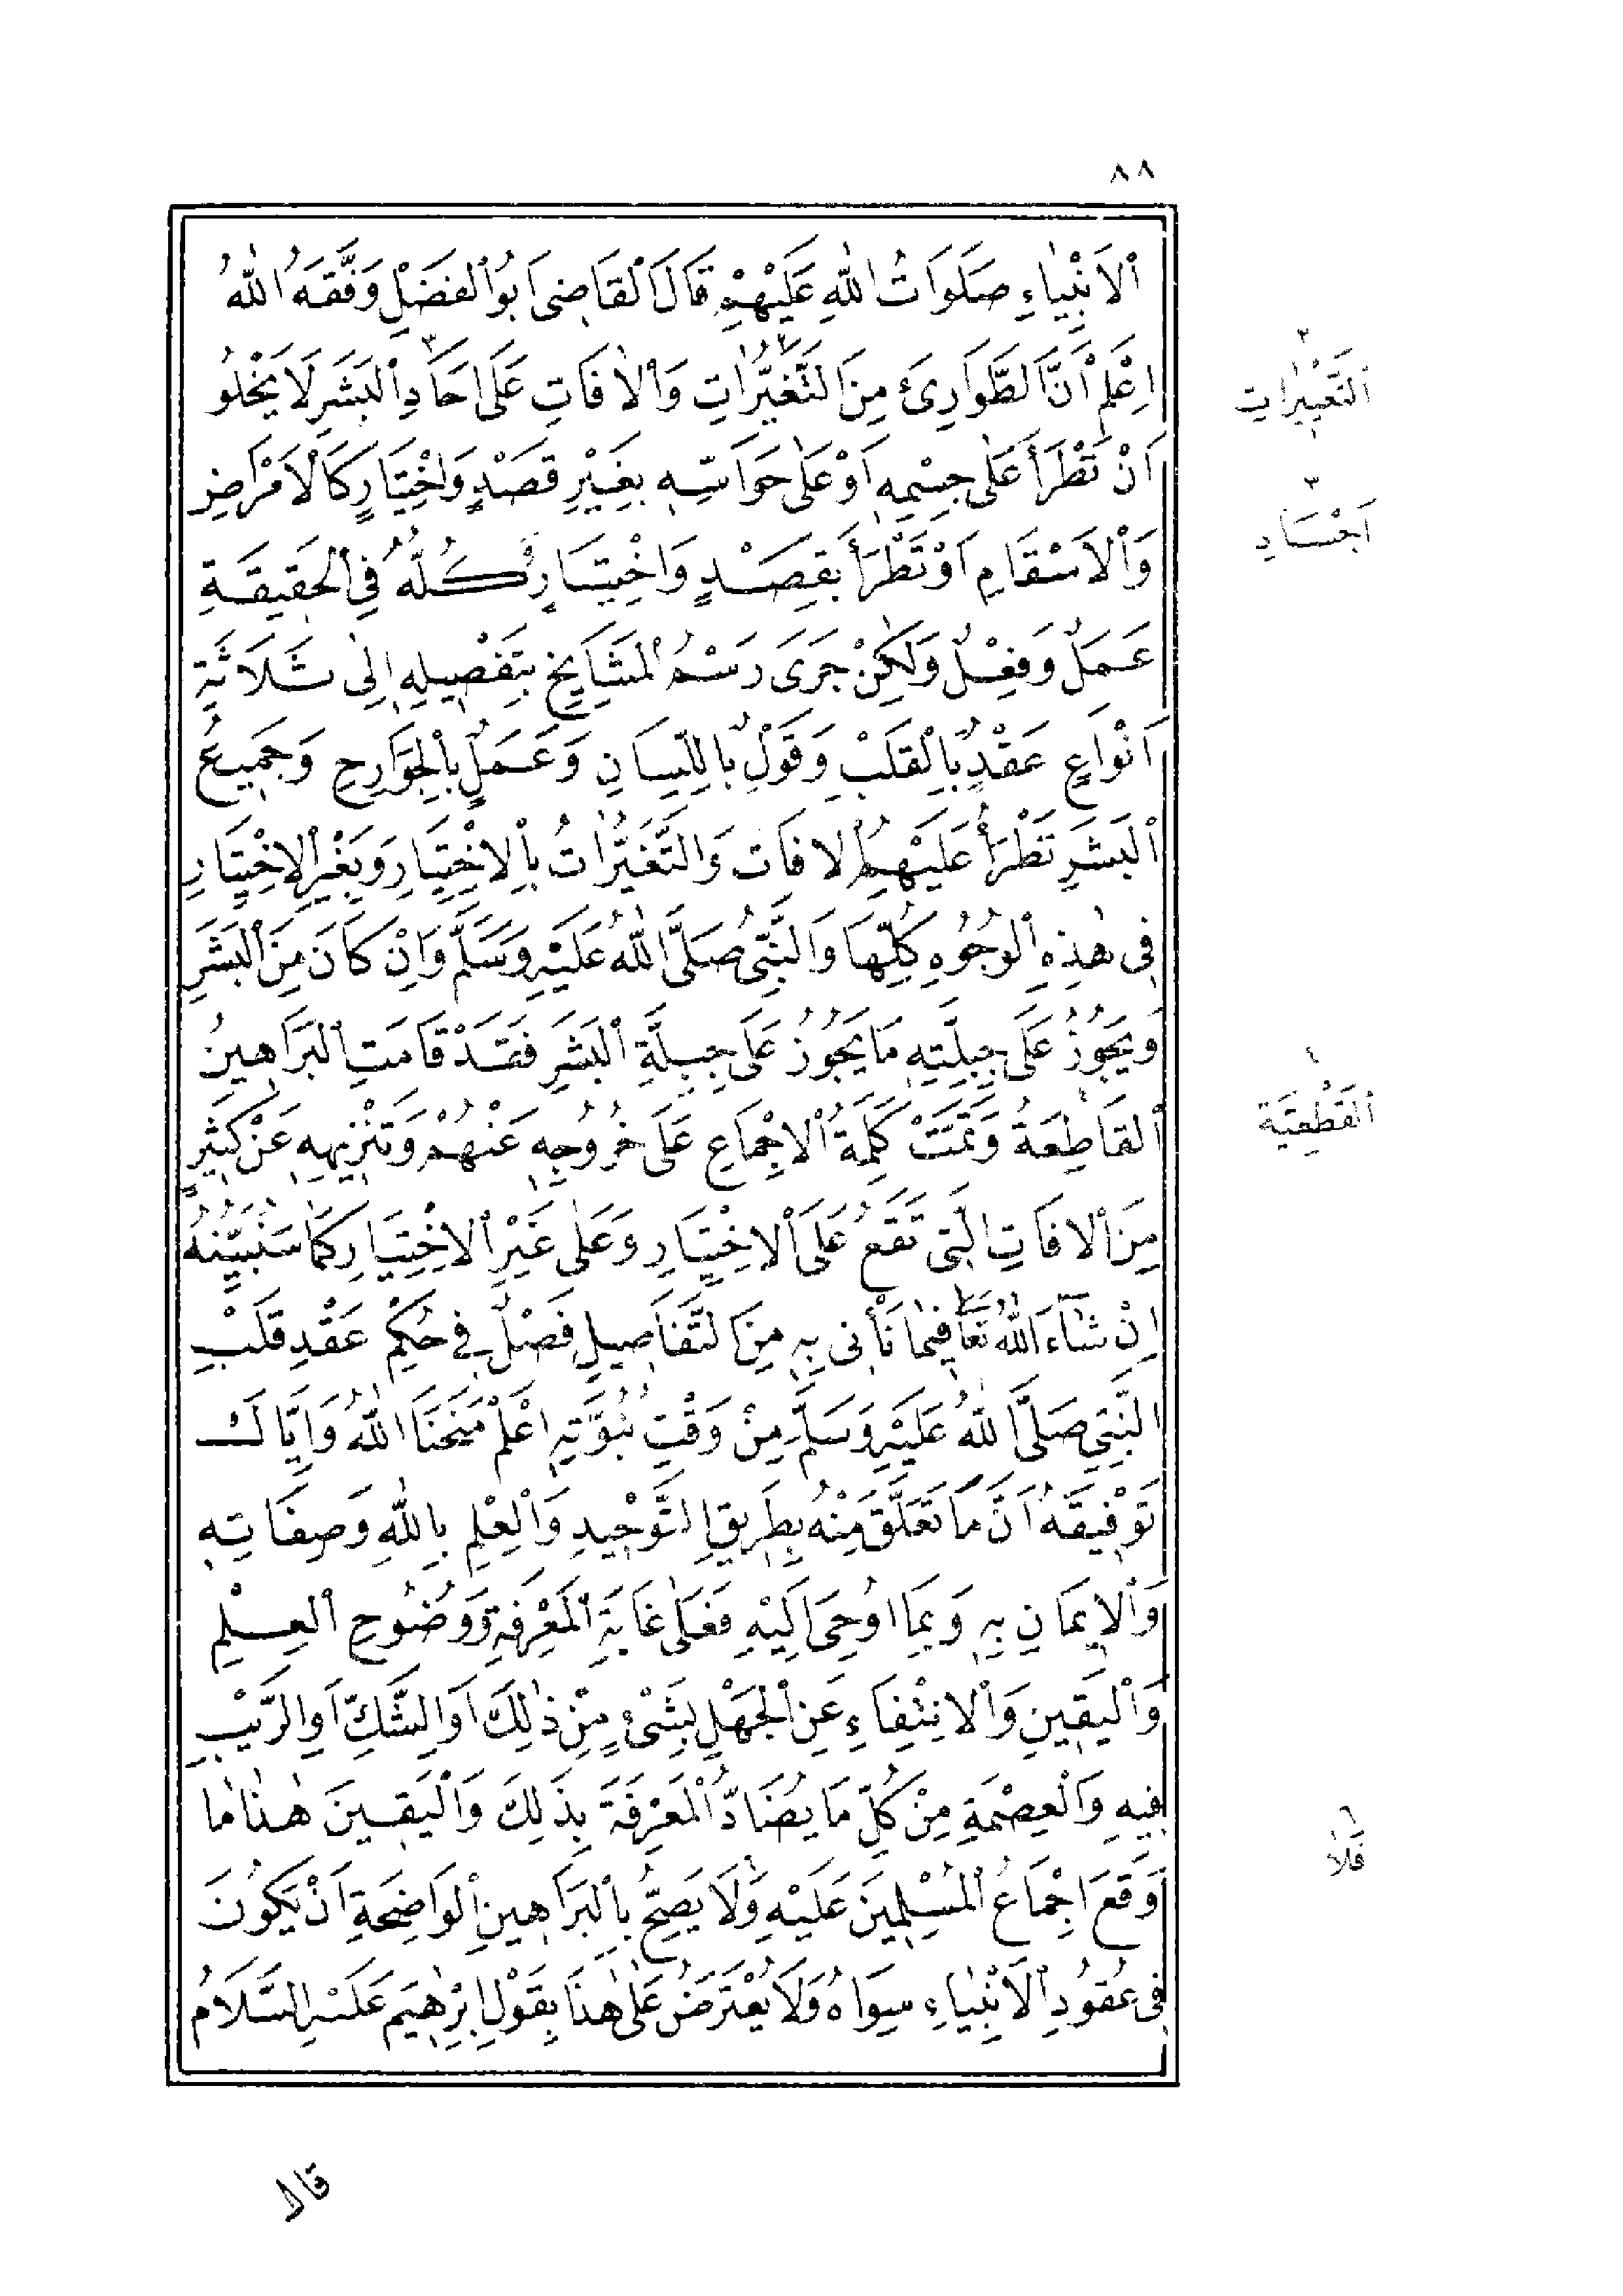 ٨٨
اَلْاَنْبِيَاءِ صَلَوَاتُ اللّٰهِ عَلَيْهِمْ قَالَ الْقَاضِى اَبُو الْفَضْلِ وَفَّقَهُ اللّٰهُ
اِعْلَمْ اَنَّ الطَّوَارِئَ مِنَ التَّغَيُّرَاتِ وَالْاٰفَاتِ عَلَى اٰحَادِ الْبَشَرِ لَا يَخْلُو
اَنْ تَطْرَأَ عَلٰى جِسْمِهِ اَوْ عَلٰى حَوَاسِّهِ بِغَيْرِ قَصْدٍ وَاخْتِيَارٍ كَالْاَمْرَاضِ
وَالْاَسْقَامِ اَوْ تَطْرَأَ بِقَصْدٍ وَاخْتِيَارٍ وَكُلُّهُ فِى الْحَقِيقَةِ
عَمَلٌ وَفِعْلٌ وَلٰكِنْ جَرَى رَسْمُ الْمَشَايِخِ بِتَفْصِيلِهِ اِلٰى ثَلَاثَةِ
اَنْوَاعٍ عَقْدٍ بِالْقَلْبِ وَقَوْلٍ بِاللِّسَانِ وَعَمَلٍ بِالْجَوَارِحِ وَجَمِيعُ
الْبَشَرِ تَطْرَأُ عَلَيْهِمُ الْاٰفَاتُ وَالتَّغَيُّرَاتُ بِالْاِخْتِيَارِ وَبِغَيْرِ الْاِخْتِيَارِ
فِى هٰذِهِ الْوُجُوهِ كُلِّهَا وَالنَّبِىُّ صَلَّى اللّٰهُ عَلَيْهِ وَسَلَّمَ وَاِنْ كَانَ مِنَ الْبَشَرِ
وَيَجُوزُ عَلَى جِبِلَّتِهِ مَا يَجُوزُ عَلَى جِبِلَّةِ الْبَشَرِ فَقَدْ قَامَتِ الْبَرَاهِينُ
الْقَاطِعَةُ وَتَمَّتْ كَلِمَةُ الْاِجْمَاعِ عَلَى خُرُوجِهِ عَنْهُمْ وَتَنْزِيهِهِ عَنْ كَثِيرٍ
مِنَ الْاٰفَاتِ الَّتِى تَقَعُ عَلَى الْاِخْتِيَارِ وَعَلَى غَيْرِ الْاِخْتِيَارِ كَمَا سَنُبَيِّنُهُ
اِنْ شَاءَ اللّٰهُ تَعَالٰى فِيمَا نَأْتِى بِهِ مِنَ التَّفَاصِيلِ فَصْلٌ فِى حُكْمِ عَقْدِ قَلْبِ
النَّبِىِّ صَلَّى اللّٰهُ عَلَيْهِ وَسَلَّمَ مِنْ وَقْتِ نُبُوَّتِهِ اِعْلَمْ مَنَحَنَا اللّٰهُ وَاِيَّاكَ
تَوْفِيقَهُ اَنَّ مَا تَعَلَّقَ مِنْهُ بِطَرِيقِ التَّوْحِيدِ وَالْعِلْمِ بِاللّٰهِ وَصِفَاتِهِ
وَالْاِيمَانِ بِهِ وَبِمَا اُوحِىَ اِلَيْهِ فَعَلَى غَايَةِ الْمَعْرِفَةِ وَوُضُوحِ الْعِلْمِ
وَالْيَقِينِ وَالْاِنْتِفَاءِ عَنِ الْجَهْلِ بِشَىْءٍ مِنْ ذٰلِكَ اَوِ الشَّكِّ اَوِ الرَّيْبِ
فِيهِ وَالْعِصْمَةِ مِنْ كُلِّ مَا يُضَادُّ الْمَعْرِفَةَ بِذٰلِكَ وَالْيَقِينَ هٰذَا مَا
وَقَعَ اِجْمَاعُ الْمُسْلِمِينَ عَلَيْهِ وَلَا يَصِحُّ بِالْبَرَاهِينِ الْوَاضِحَةِ اَنْ يَكُونَ
فِى عُقُودِ الْاَنْبِيَاءِ سِوَاهُ وَلَا يُعْتَرَضُ عَلٰى هٰذَا بِقَوْلِ اِبْرٰهِيمَ عَلَيْهِ السَّلَامُ
٢
اَلتَّغْيِيرَاتِ
٣
اَجْسَادِ
٤
اَلْقَطْعِيَّة
٦
فَلَا
قال